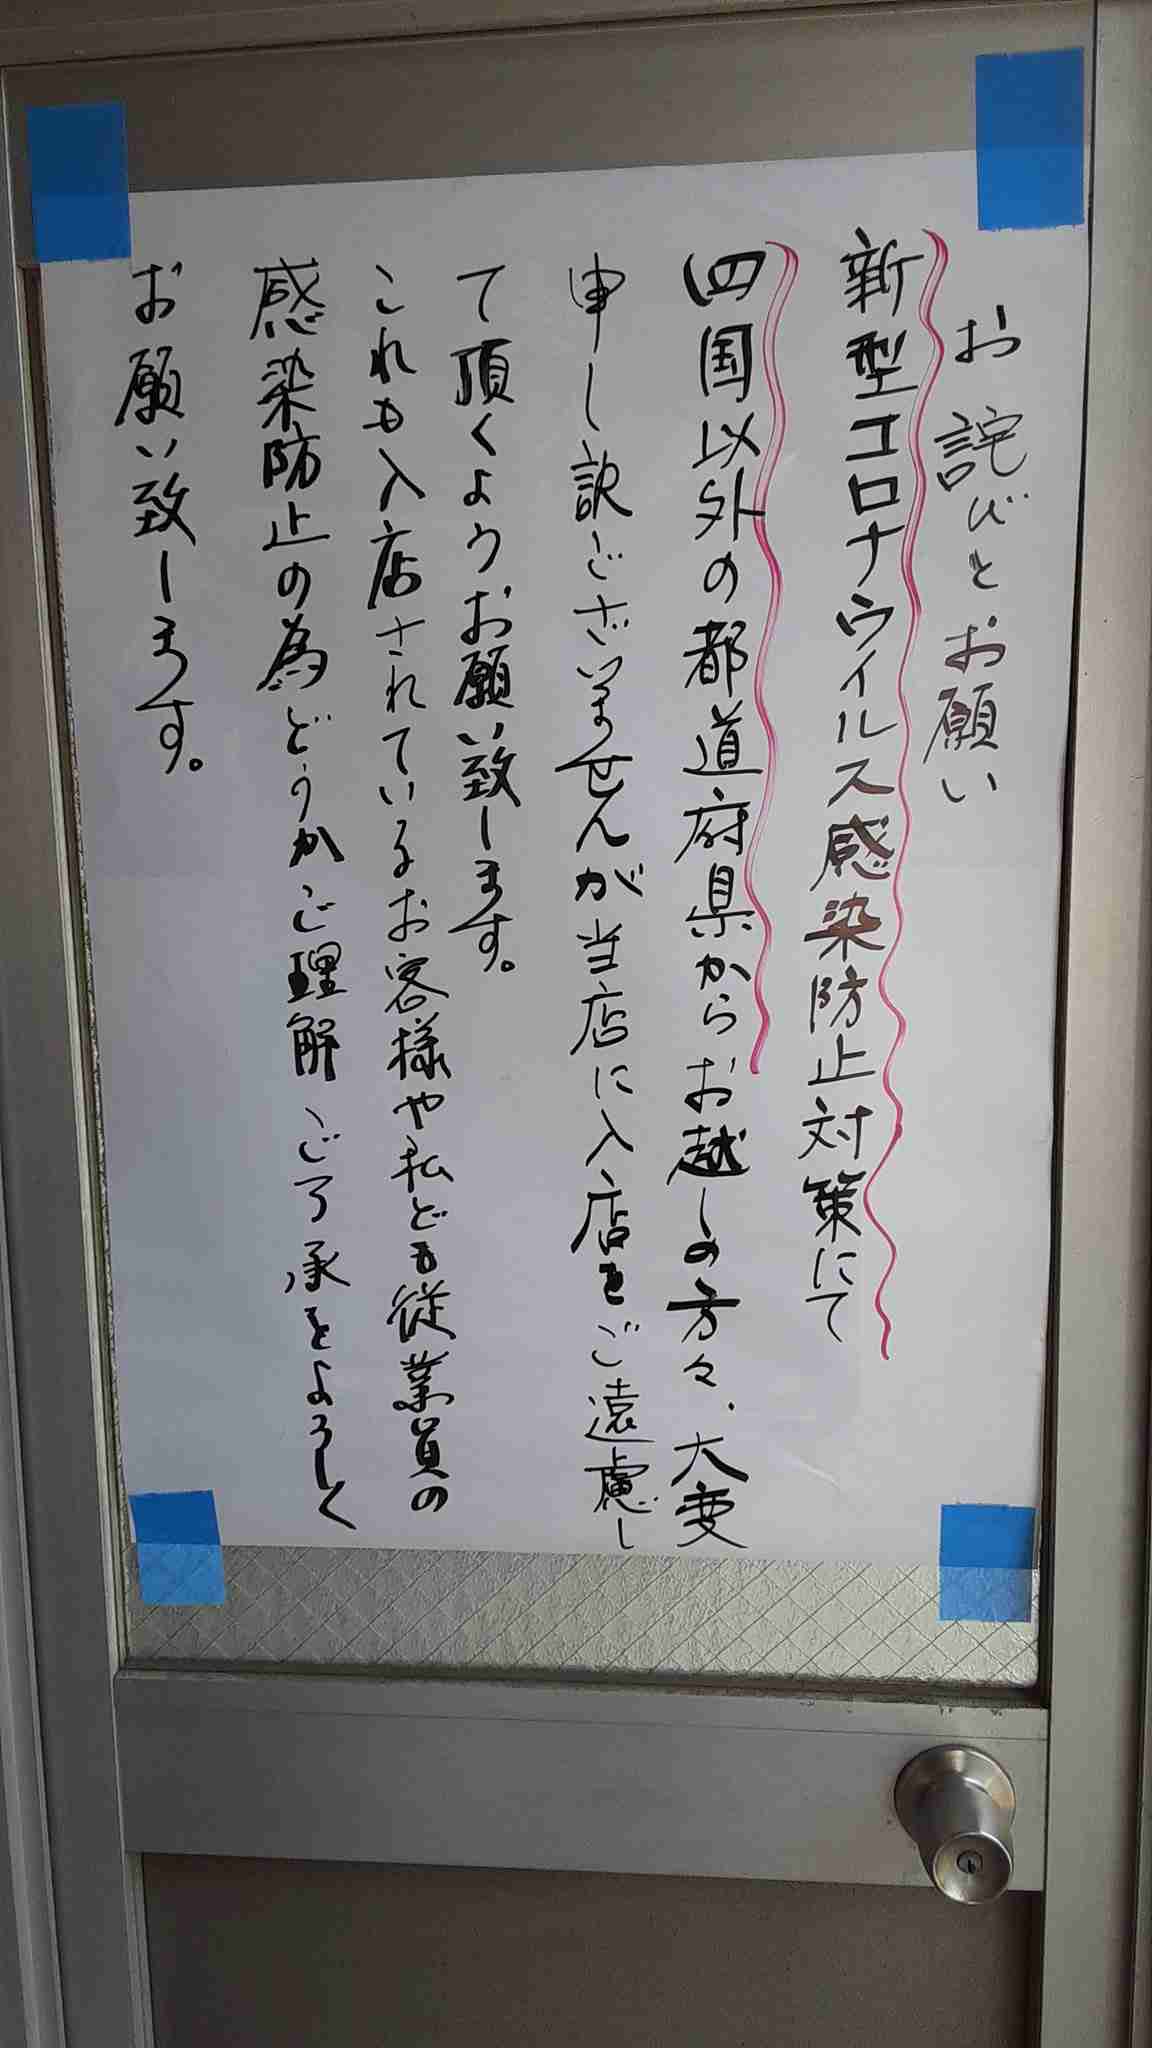 お詫びとお願い
新型コロナウイルス感染防止対策にて
四国以外の都道府県からお越しの方々、大変
申し訳ございませんが当店に入店をご遠慮し
て頂くようお願い致します。
これも入店されているお客様や私ども従業員の
感染防止の為どうかご理解ご了承をよろしく
お願い致します。